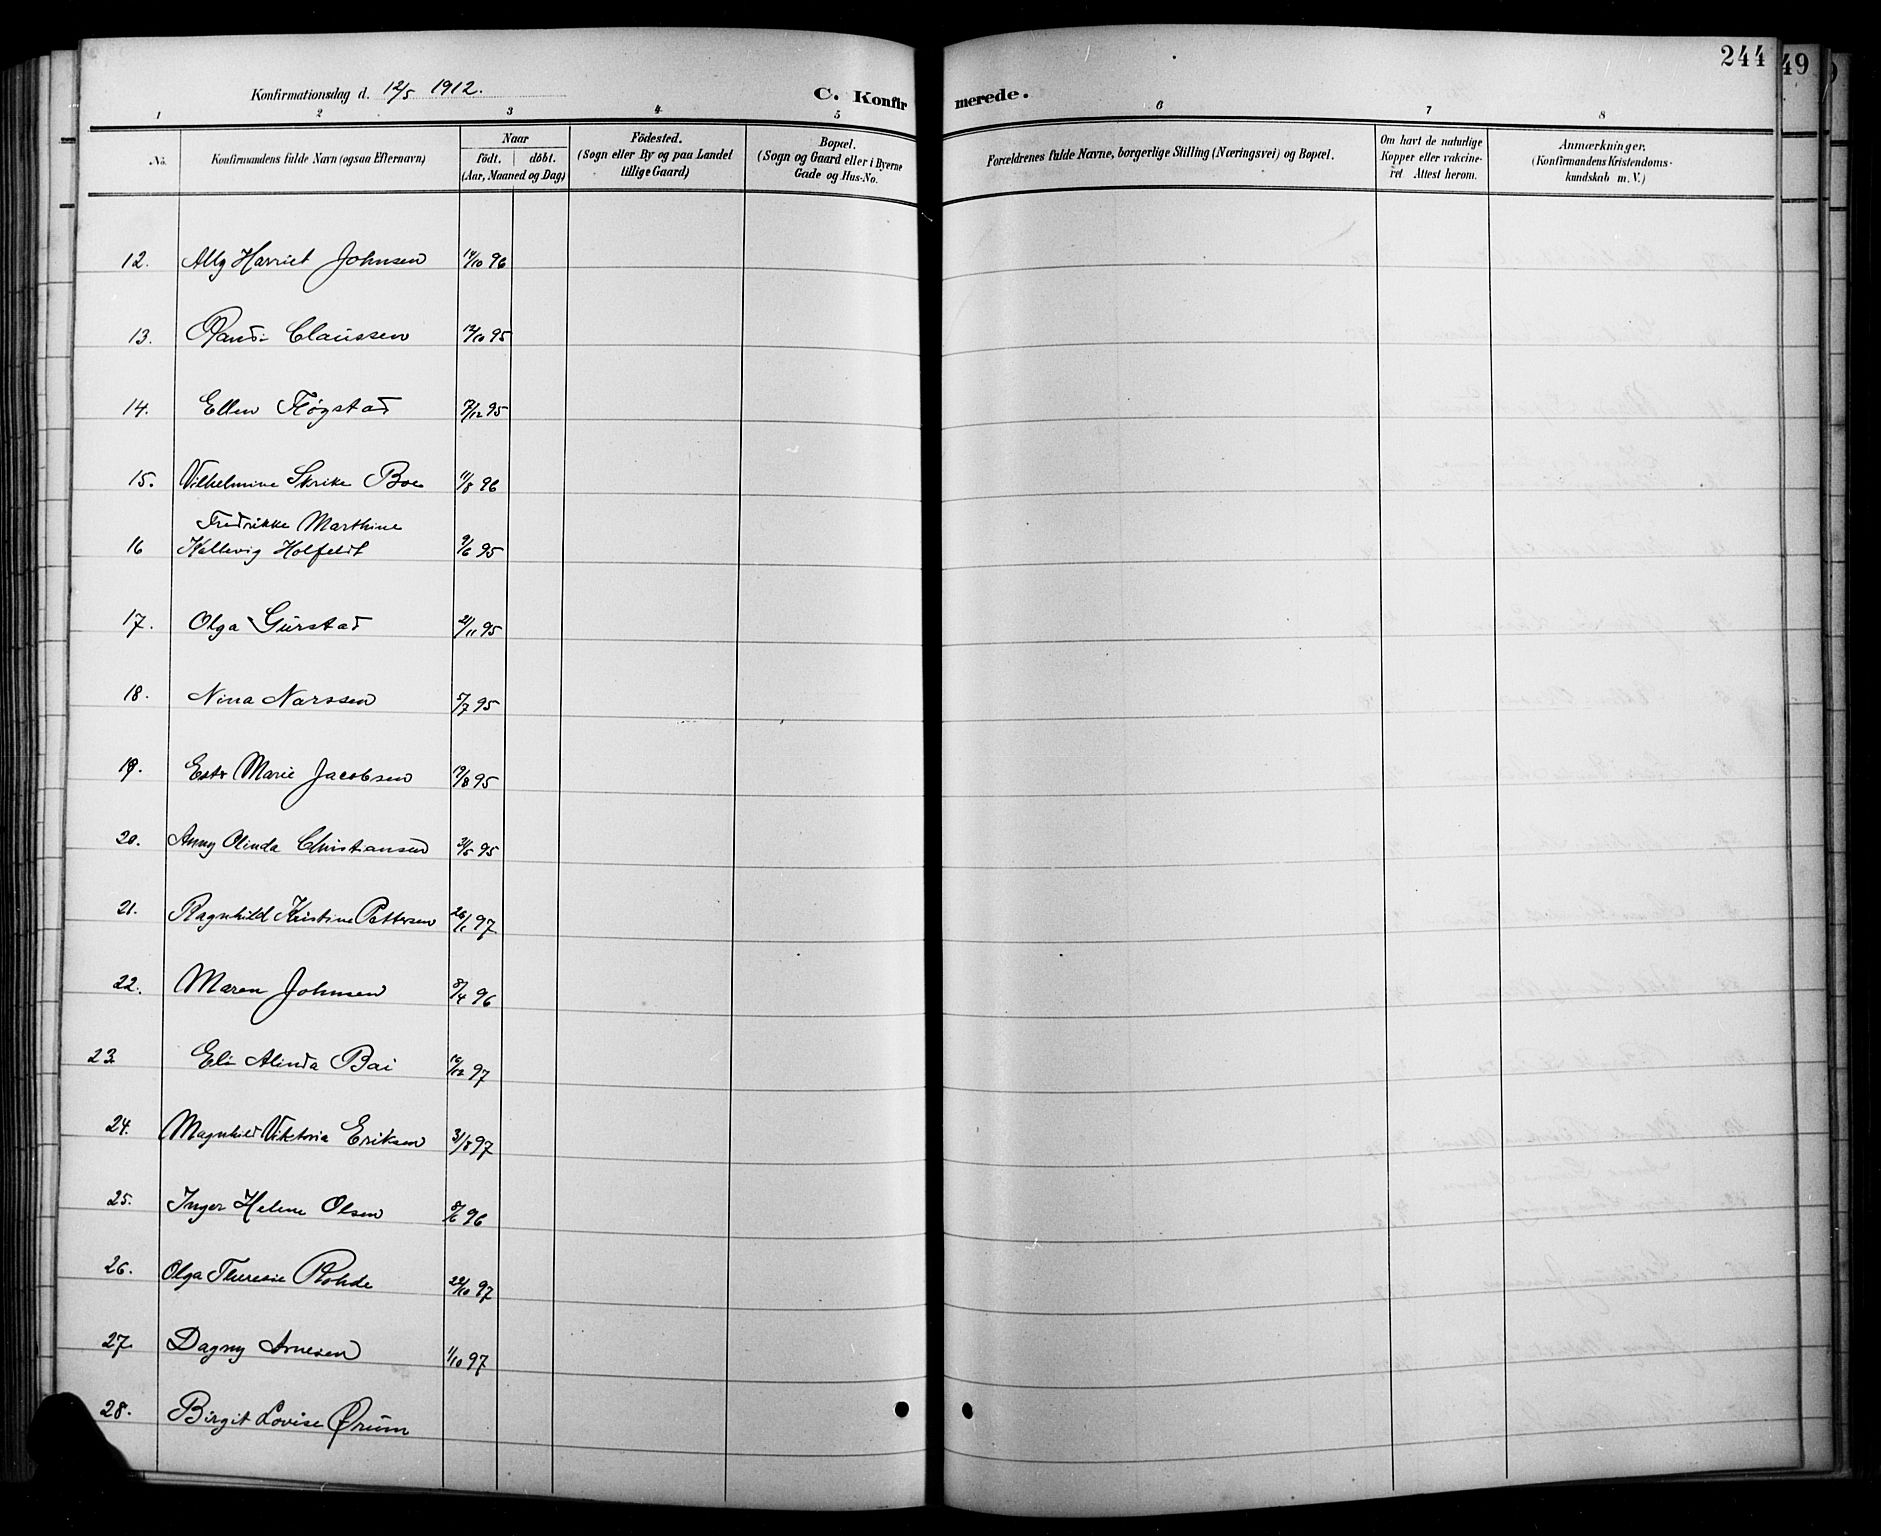 244
49
Konfirmationsdag d. 12/5 1912.
C. Konfirmerede.
1 2 3 4 5 6 7 8
No.
Konfirmandens fulde Navn (ogsaa Efternavn)
Naar
födt. döbt.
(Aar, Maaned og Dag)
Födested.
(Sogn eller By og paa Landet
tillige Gaard)
Bopæl.
(Sogn og Gaard eller i Byerne
Gade og Hus-No.
Forældrenes fulde Navne, borgerlige Stilling (Næringsvei) og Bopæl.
Om havt de naturlige
Kopper eller vakcine-
ret Attest herom.
Anmærkninger,
(Konfirmandens Kristendoms-
kundskab m. V.)
12. Ally Harriet Johnsen 14/10 96
13. Randi Claussen 12/10 95
14. Ellen Fløgstad 7/12 95
15. Vilhelmine Skrike Boe 11/8 96
Fredrikke Marthine
16 Kallevig Holfeldt 9/6 95
17. Olga Gurstad 21/11 95
18. Nina Narssen 5/7 95
19. Ester Marie Jacobsen 19/8 95
20. Anny Olinda Christiansen 31/5 95
21. Ragnhild Kristine Pettersen 26/1 97
22. Maren Johnsen 8/4 96
23. Eli Alinda Bai 10/12 97
24. Magnhild Viktoria Eriksen 31/8 97
25. Inger Helene Olsen 8/6 96
26. Olga Theresie Rohde 22/10 97
27. Dagny Arnesen 1/10 97
28. Birgit Lovise Ørum